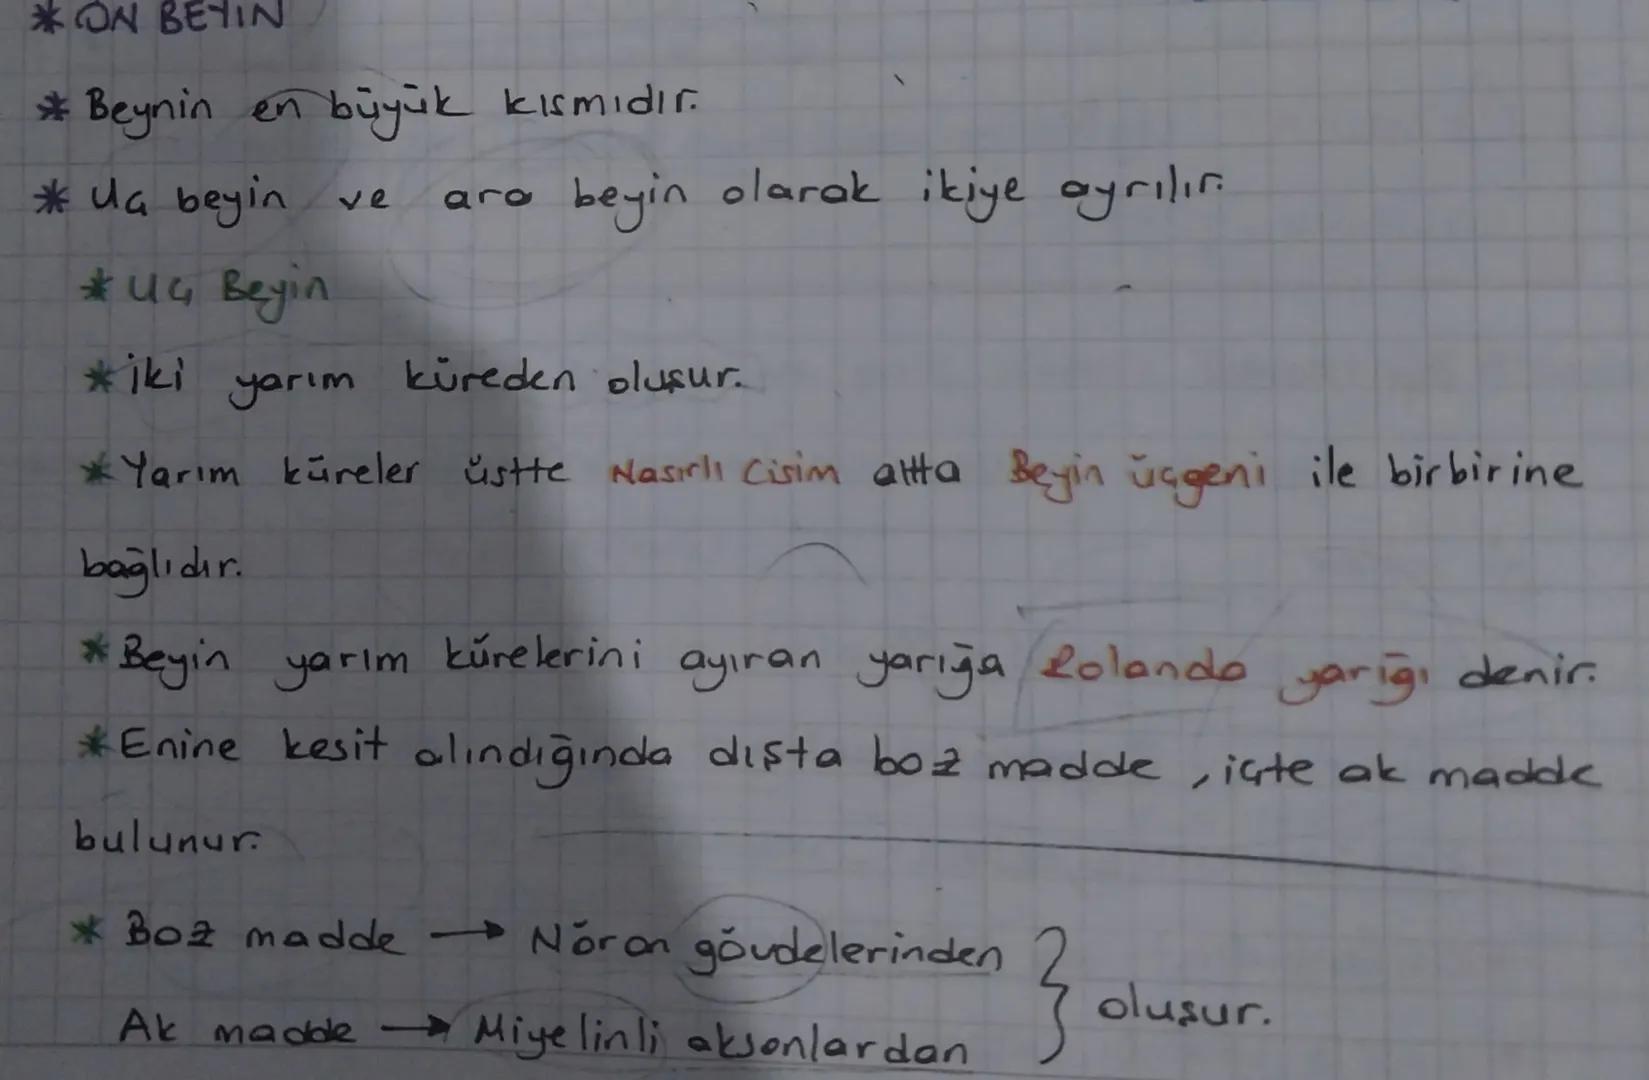 * ÖN BEYİN
* Beynin en büyük kısmıdır.
* Uç beyin ve ara beyin olarak ikiye ayrılır.
* Uç Beyin
* İki yarım küreden oluşur.
* Yarım küreler üstte Nasırlı Cisim altta Beyin üçgeni ile birbirine
bağlıdır.
* Beyin yarım kürelerini ayıran yarığa Rolando yarığı denir.
* Enine kesit alındığında dışta boz madde, içte ak madde
bulunur.
* Boz madde → Nöron gövdelerinden
} oluşur.
Ak madde → Miyelinli aksonlardan